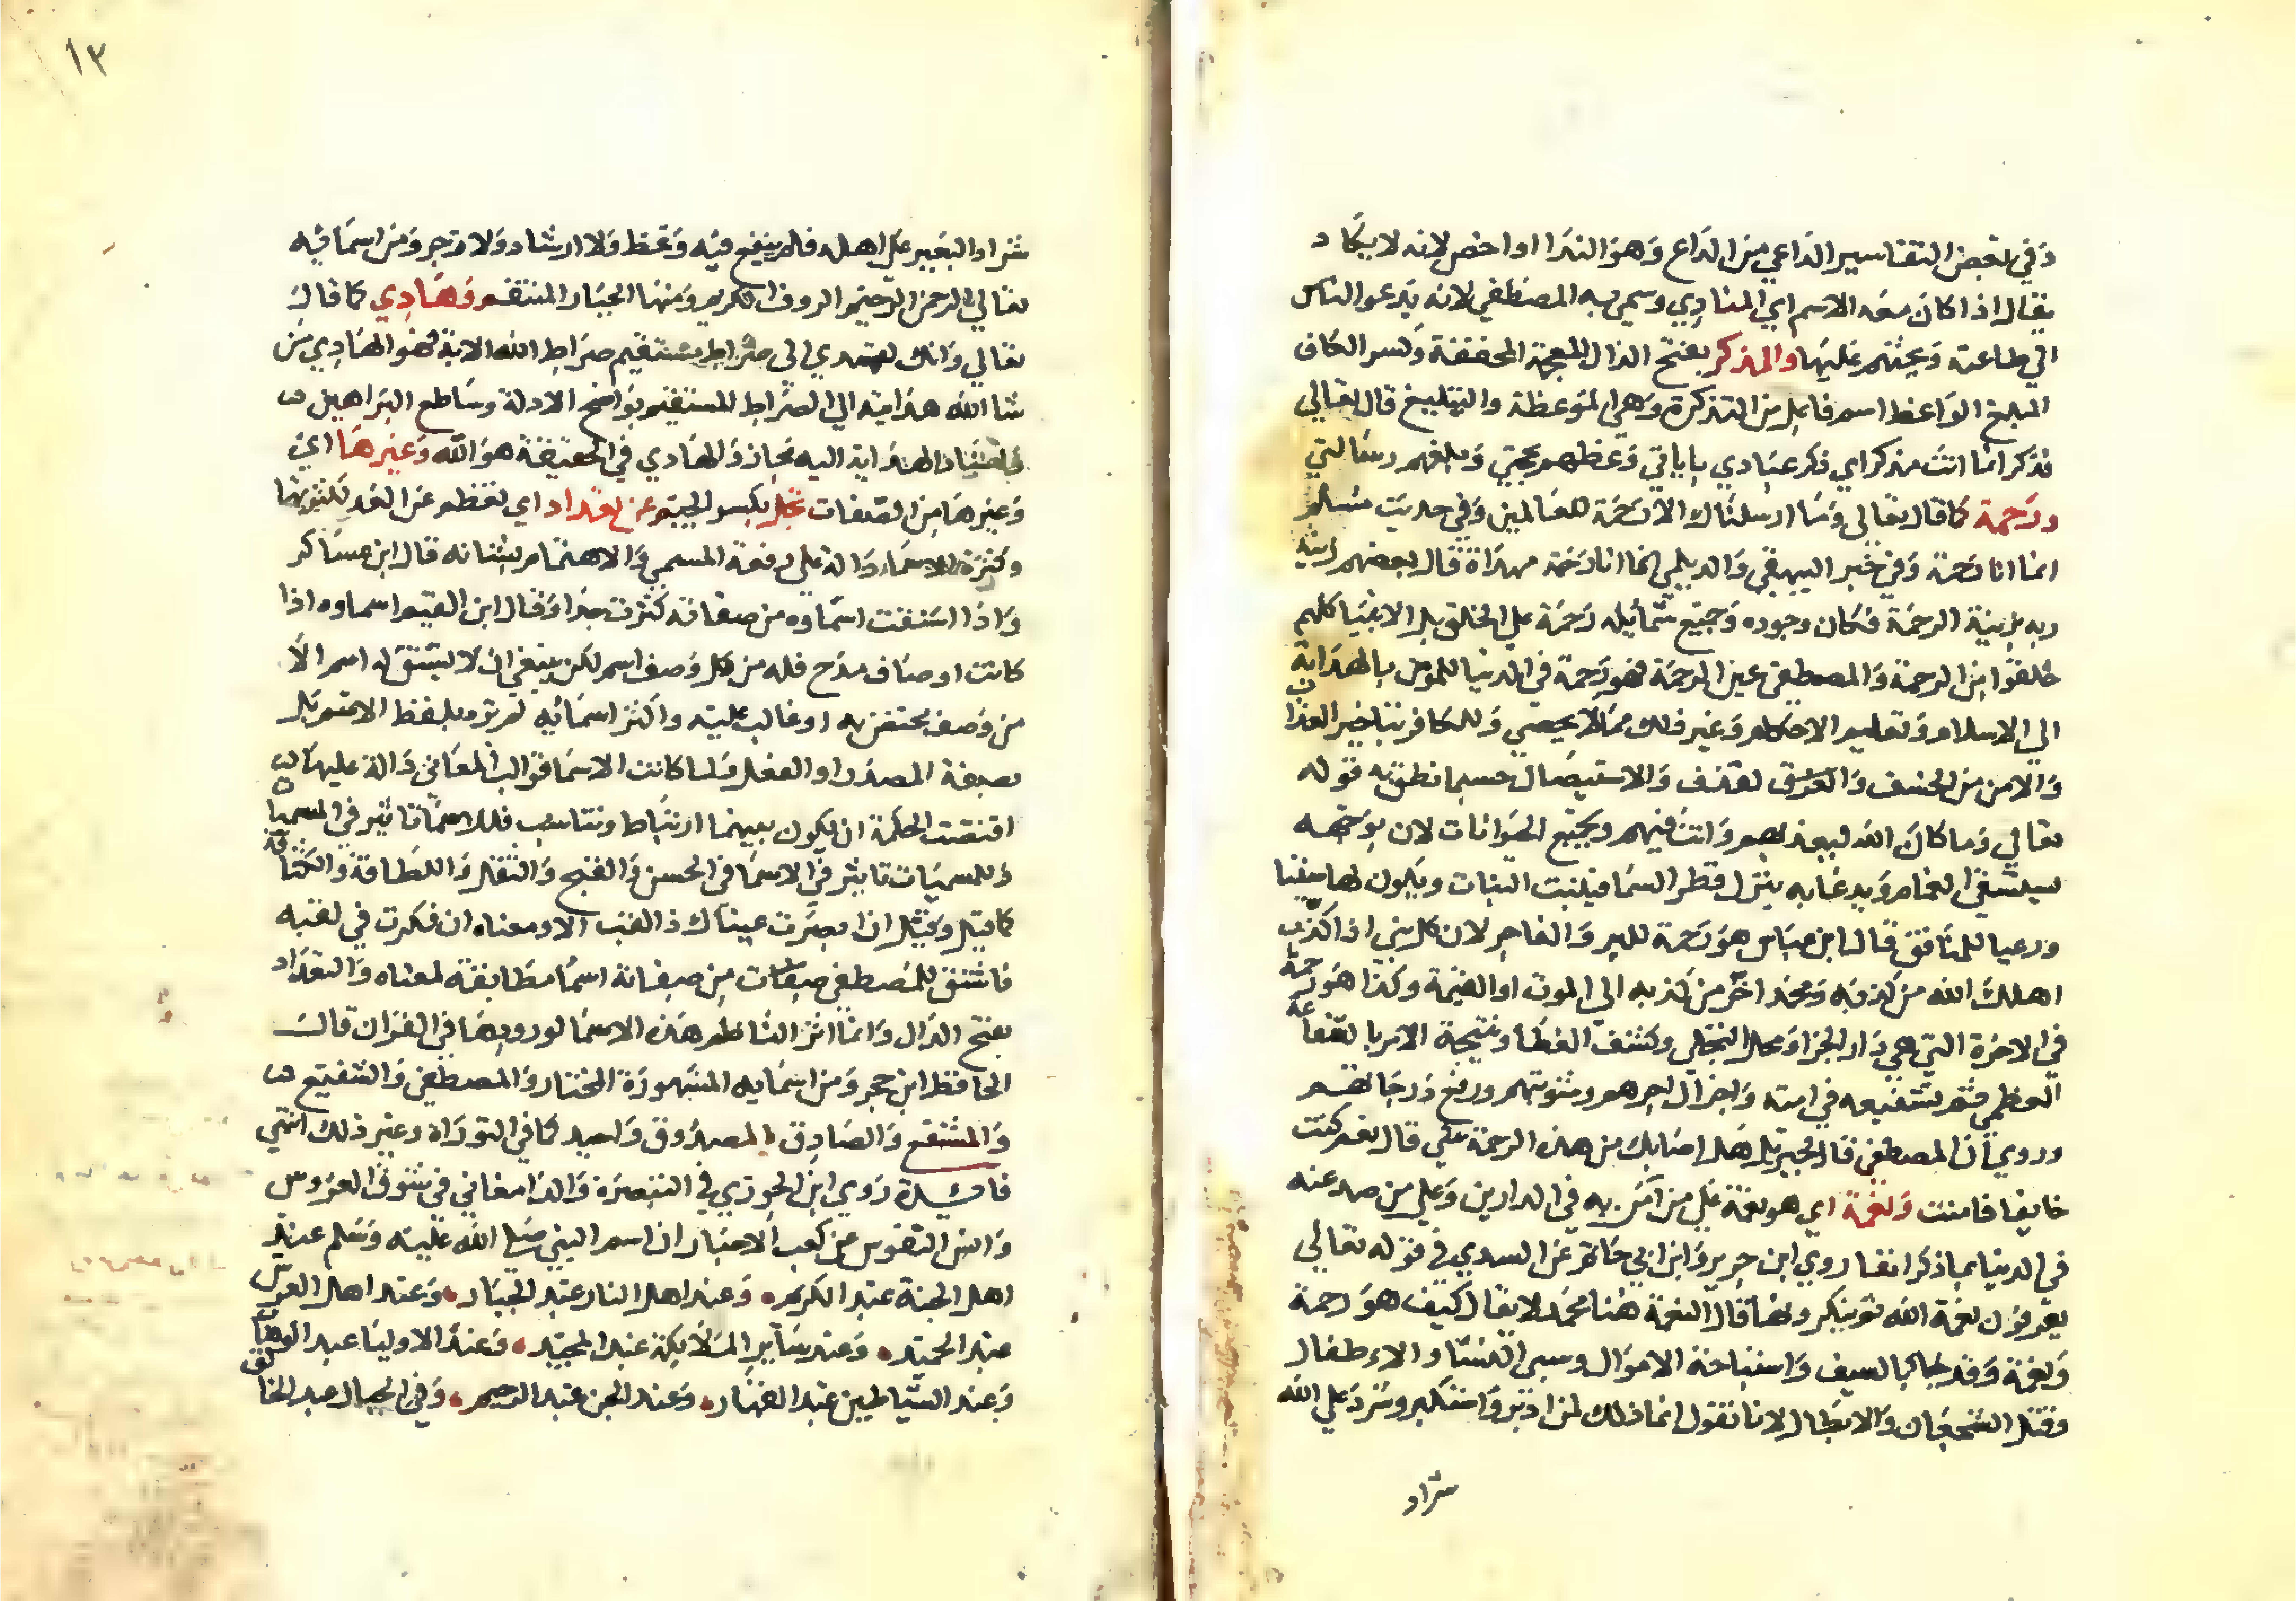 وفي بعض التفاسير الداعي من الداع وهو الندا او اخص لانه لا يكاد
يقال اذا كان معه الاسم اي المنادي وسمي به المصطفي لانه يدعو الناس
الي طاعته ويحثهم عليها والمذكر بفتح الذال المعجمة المخففة وكسر الكاف
المبلغ الواعظ اسم فاعل من التذكرة وهي الموعظة والتبليغ قال تعالي
فذكر انما انت مذكر اي فكر عبادي باياتي وعظهم بحجتي وبلغهم رسالتي
ورحمة كما قال تعالي وما ارسلناك الا رحمة للعالمين وفي حديث مسلم
انما انا رحمة وفي خبر البيهقي والديلمي انما انا رحمة مهداة قال بعضهم زينه
ربه بزينة الرحمة فكان وجوده وجميع شمايله رحمة علي الخلق بل الانبيا كلهم
خلقوا من الرحمة والمصطفي عين الرحمة فهو رحمة في الدنيا للمومن بالهداية
الي الاسلام وتعليم الاحكام وغير ذلك مما لا يحصي وللكافر بتاخير العذاب
والامن من الخسف والغرق لقذف والاستيصال حسبما نطق به قوله
تعالي وما كان الله ليعذبهم وانت فيهم وبجميع الحيوانات لان بوجهه
يستسقي الغمام وبدعايه ينزل قطر السما فينبت النبات ويكون لها سقيا
ورعيا للمنافق قال ابن عباس هو رحمة للبر والفاجر لان كل نبي اذا كذب
اهلك الله من كذبه ومحمد اخر من كذبه الي الموت او القيمة وكذا هو رحمة
في الاخرة التي هي دار الجزا ومحل التجلي وكشف الغطا ونتيجة الامر بالشفاعة
العظمي ثم بشفيعه في امته واجزال اجرهم ومثوبتهم ورفع درجاتهم
وروي ان المصطفي قال لجبريل هل اصابك من هذه الرحمة شي قال نعم كنت
خايفا فامنت ونعمة اي هو نعمة علي من امن به في الدارين وعلي من صد عنه
في الدنيا بما ذكر انفا روي ابن جرير وابن ابي حاتم عن السدي في قوله تعالي
يعرفون نعمة الله ثم ينكرونها قال النعمة هنا محمد لا يقال كيف هو رحمة
ونعمة وقد جا بالسيف واستباحة الاموال وسبي النسا والاطفال
وقتل الشجعان والابطال لانا نقول انما ذلك لمن ادبر واستكبر وشرد علي الله
شراد
١٣
شراد البعير علي اهله فلم ينفع فيه وعظ ولا ارشاد ولا زجر ومن اسمايه
تعالي الرحمن الرحيم الروف الكريم ومنها الجبار المنتقم وهادي كما قال
تعالي وانك لتهدي الي صراط مستقيم صراط الله الاية فهو الهادي من
شا الله هدايته الي الصراط المستقيم بواضح الادلة وساطع البراهين
فاسناد الهداية اليه مجاز والهادي في الحقيقة هو الله وغيرها اي
وغيرها من الصفات تجل بكسر الجيم عن تعداد اي تعظم عن العد لكثرتها
وكثرة الاسما دالة علي رفعة المسمي والاهتمام بشانه قال ابن عساكر
واذا اشتقت اسماوه من صفاته كثرت جدا وقال ابن القيم اسماوه اذا
كانت اوصاف مدح فله من كل وصف اسم لكن ينبغي ان لا يشتق له اسم الا
من وصف يختص به او غالب عليه واكثر اسمايه لم يرد بلفظ الاسم بل
بصيغة المصدر او الفعل ولما كانت الاسما قوالب المعاني دالة عليها
اقتضت الحكمة ان يكون بينهما ارتباط وتناسب فللاسما تاثير في المسميات
وللمسميات تاثير في الاسما في الحسن والقبح والثقل واللطافة والكثافة
كما قيل وقل ان ابصرت عيناك ذا لقب الا ومعناه ان فكرت في لقبه
فاشتق للمصطفي صفات من صفاته اسما مطابقة لمعناه والتعداد
بفتح الدال وانما اثر الناظم هذه الاسما لورودها في القران قال
الحافظ ابن حجر ومن اسمايه المشهورة المختار والمصطفي والشفيع
والمشفع والصادق المصدوق واحيد كما في التوراة وغير ذلك انتهي
فايدة روي ابن الجوزي في التبصرة والدامغاني في شوق العروس
وانس النفوس عن كعب الاحبار ان اسم النبي صلي الله عليه وسلم عند
اهل الجنة عبد الكريم وعند اهل النار عبد الجبار وعند اهل العرش
عبد الحميد وعند ساير الملايكة عبد المجيد وعند الاوليا عبد الوهاب
وعند الشياطين عبد القهار وعند الجن عبد الرحيم وفي الجبال عبد الخالق